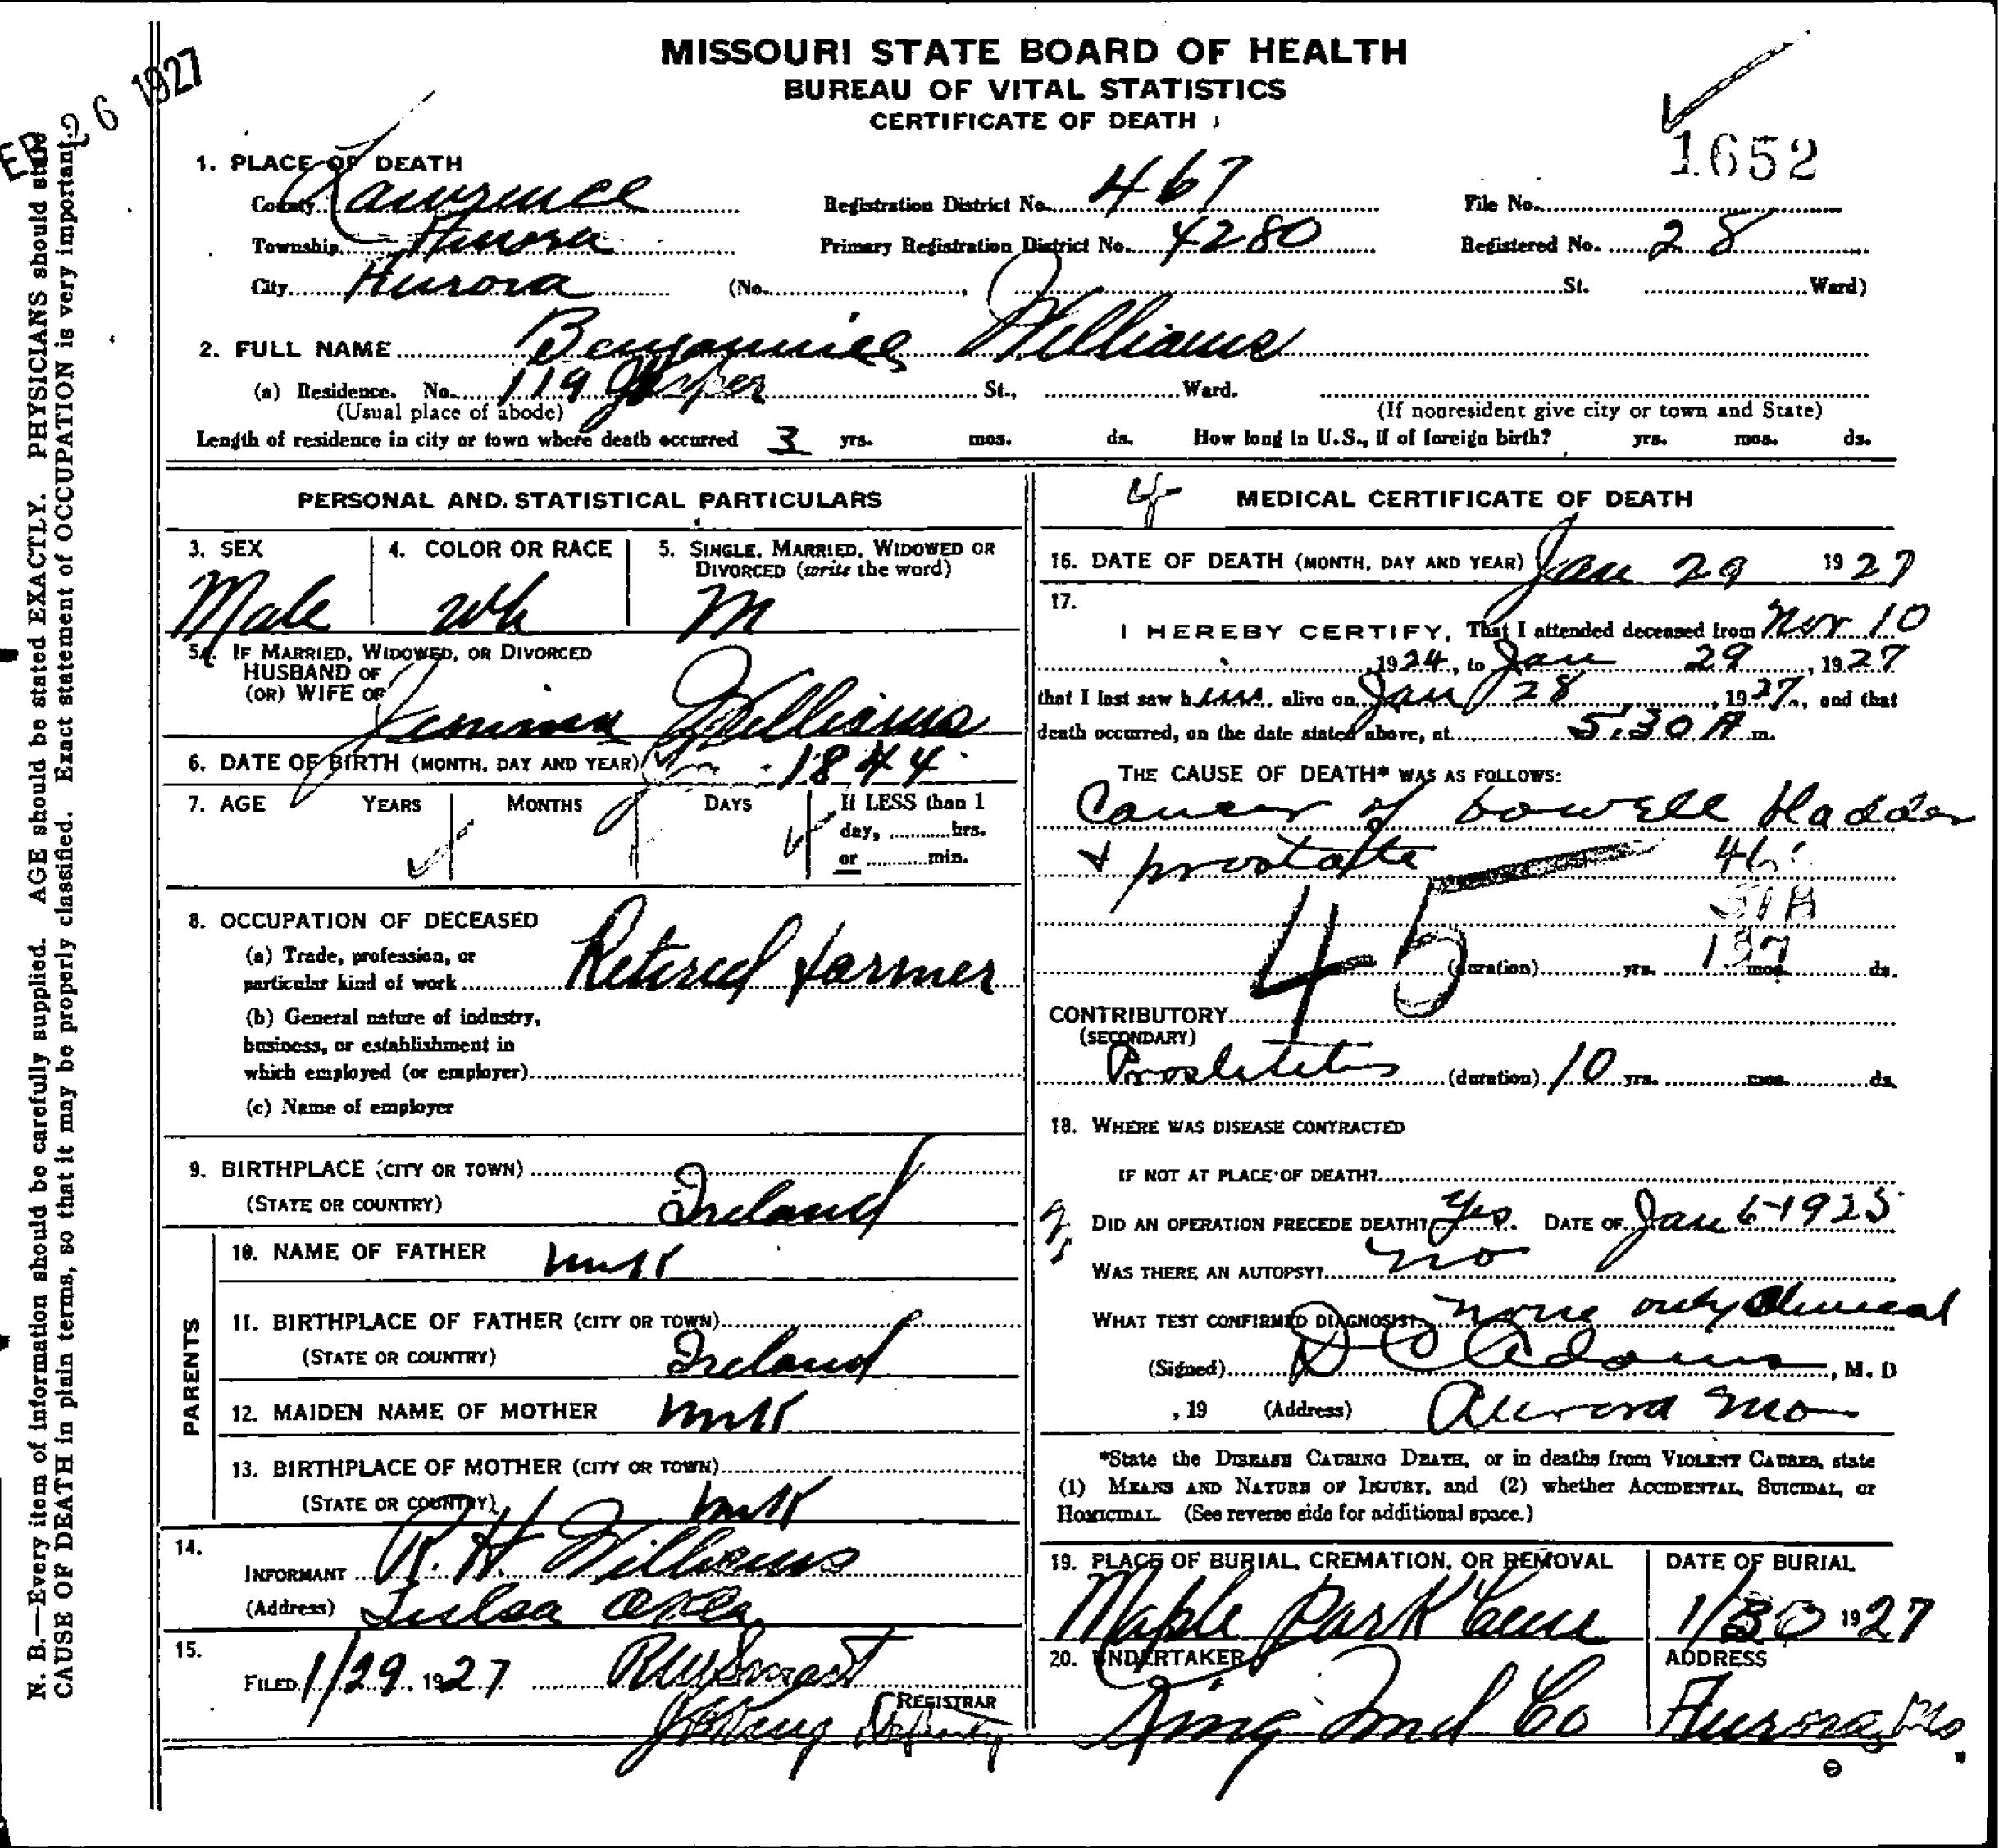 26 1927
MISSOURI STATE BOARD OF HEALTH
BUREAU OF VITAL STATISTICS
CERTIFICATE OF DEATH
1652
1. PLACE OF DEATH
County Lawrence Registration District No. 467 File No.
Township Aurora Primary Registration District No. 4280 Registered No. 28
City Aurora (No. , St. Ward)
2. FULL NAME Williams
(a) Residence. No. 119 Jasper St., Ward.
(Usual place of abode) (If nonresident give city or town and State)
Length of residence in city or town where death occurred 3 yrs. mos. ds. How long in U.S., if of foreign birth? yrs. mos. ds.
PERSONAL AND STATISTICAL PARTICULARS
3. SEX 4. COLOR OR RACE 5. SINGLE, MARRIED, WIDOWED OR
DIVORCED (write the word)
Male Wh M
5A. IF MARRIED, WIDOWED, OR DIVORCED
HUSBAND OF
(OR) WIFE OF
Williams
6. DATE OF BIRTH (MONTH, DAY AND YEAR) 1844
7. AGE YEARS MONTHS DAYS If LESS than 1
day, hrs.
or min.
8. OCCUPATION OF DECEASED
(a) Trade, profession, or
particular kind of work Retired farmer
(b) General nature of industry,
business, or establishment in
which employed (or employer)
(c) Name of employer
9. BIRTHPLACE (CITY OR TOWN)
(STATE OR COUNTRY) Ireland
PARENTS
10. NAME OF FATHER unk
11. BIRTHPLACE OF FATHER (CITY OR TOWN)
(STATE OR COUNTRY) Ireland
12. MAIDEN NAME OF MOTHER unk
13. BIRTHPLACE OF MOTHER (CITY OR TOWN)
(STATE OR COUNTRY) unk
14.
INFORMANT R. H. Williams
(Address) Tulsa Okla
15.
FILED 1/29 1927 RW Smart
REGISTRAR
JC King Deputy
4 MEDICAL CERTIFICATE OF DEATH
16. DATE OF DEATH (MONTH, DAY AND YEAR) Jan 29 1927
17.
I HEREBY CERTIFY, That I attended deceased from Nov 10
1924, to Jan 29, 1927
that I last saw him alive on Jan 28, 1927, and that
death occurred, on the date stated above, at 5:30 A m.
THE CAUSE OF DEATH* WAS AS FOLLOWS:
Cancer of bowell bladder
& prostate 46
45
(duration) yrs. 137 mos. ds.
CONTRIBUTORY
(SECONDARY)
Prostitis (duration) 10 yrs. mos. ds.
18. WHERE WAS DISEASE CONTRACTED
IF NOT AT PLACE OF DEATH?
DID AN OPERATION PRECEDE DEATH? Yes. DATE OF Jan 6-1925
WAS THERE AN AUTOPSY? no
WHAT TEST CONFIRMED DIAGNOSIS? none only Clinical
(Signed) D C Adams, M. D
, 19 (Address) Aurora Mo
*State the DISEASE CAUSING DEATH, or in deaths from VIOLENT CAUSES, state
(1) MEANS AND NATURE OF INJURY, and (2) whether ACCIDENTAL, SUICIDAL, or
HOMICIDAL. (See reverse side for additional space.)
19. PLACE OF BURIAL, CREMATION, OR REMOVAL DATE OF BURIAL
Maple Park Cem 1/30 1927
20. UNDERTAKER ADDRESS
King Und Co Aurora, Mo.
N. B.—Every item of information should be carefully supplied. AGE should be stated EXACTLY. PHYSICIANS should state
CAUSE OF DEATH in plain terms, so that it may be properly classified. Exact statement of OCCUPATION is very important.